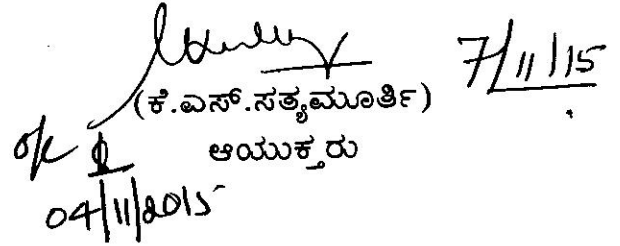 7/11/15
(ಕೆ.ಎಸ್.ಸತ್ಯಮೂರ್ತಿ)
ಆಯುಕ್ತರು
04/11/2015